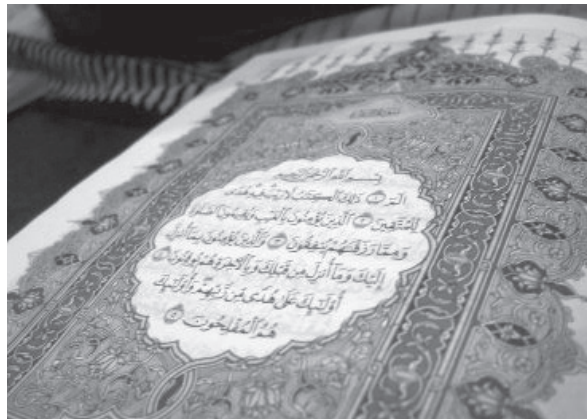 بِسْمِ اللَّهِ الرَّحْمَٰنِ الرَّحِيمِ
الٓمٓ ١ ذَٰلِكَ ٱلْكِتَٰبُ لَا رَيْبَ فِيهِ هُدًى
لِّلْمُتَّقِينَ ٢ ٱلَّذِينَ يُؤْمِنُونَ بِٱلْغَيْبِ وَيُقِيمُونَ ٱلصَّلَوٰةَ
وَمِمَّا رَزَقْنَٰهُمْ يُنفِقُونَ ٣ وَٱلَّذِينَ يُؤْمِنُونَ بِمَآ أُنزِلَ
إِلَيْكَ وَمَآ أُنزِلَ مِن قَبْلِكَ وَبِٱلْءَاخِرَةِ هُمْ يُوقِنُونَ ٤
أُو۟لَٰٓئِكَ عَلَىٰ هُدًى مِّن رَّبِّهِمْ وَأُو۟لَٰٓئِكَ
هُمُ ٱلْمُفْلِحُونَ ٥